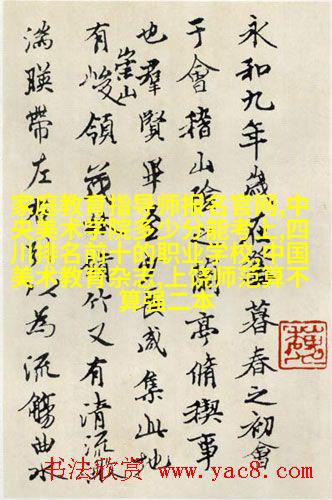 永和九年歲在癸丑暮春之初會
于會稽山陰之蘭亭脩稧事
也羣賢畢至少長咸集此地
有崇山峻領茂林脩竹又有清流激
湍暎帶左右引以為流觴曲水
家庭教育指导师报名官网,中
央美术学院多少分能考上,四
川排名前十的职业学校,中国
美术教育杂志,上饶师范算不
算强二本
书法欣赏 www.yac8.com